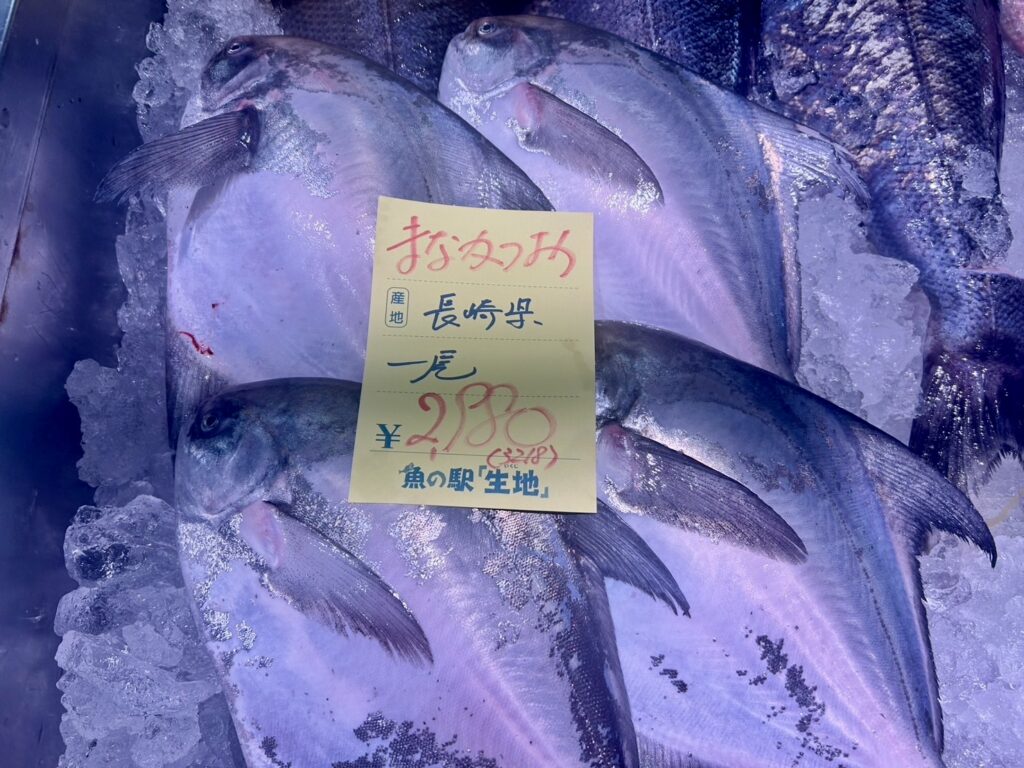 まなかつお
産地 長崎県
一尾
¥2,980
(3218)
魚の駅「生地」